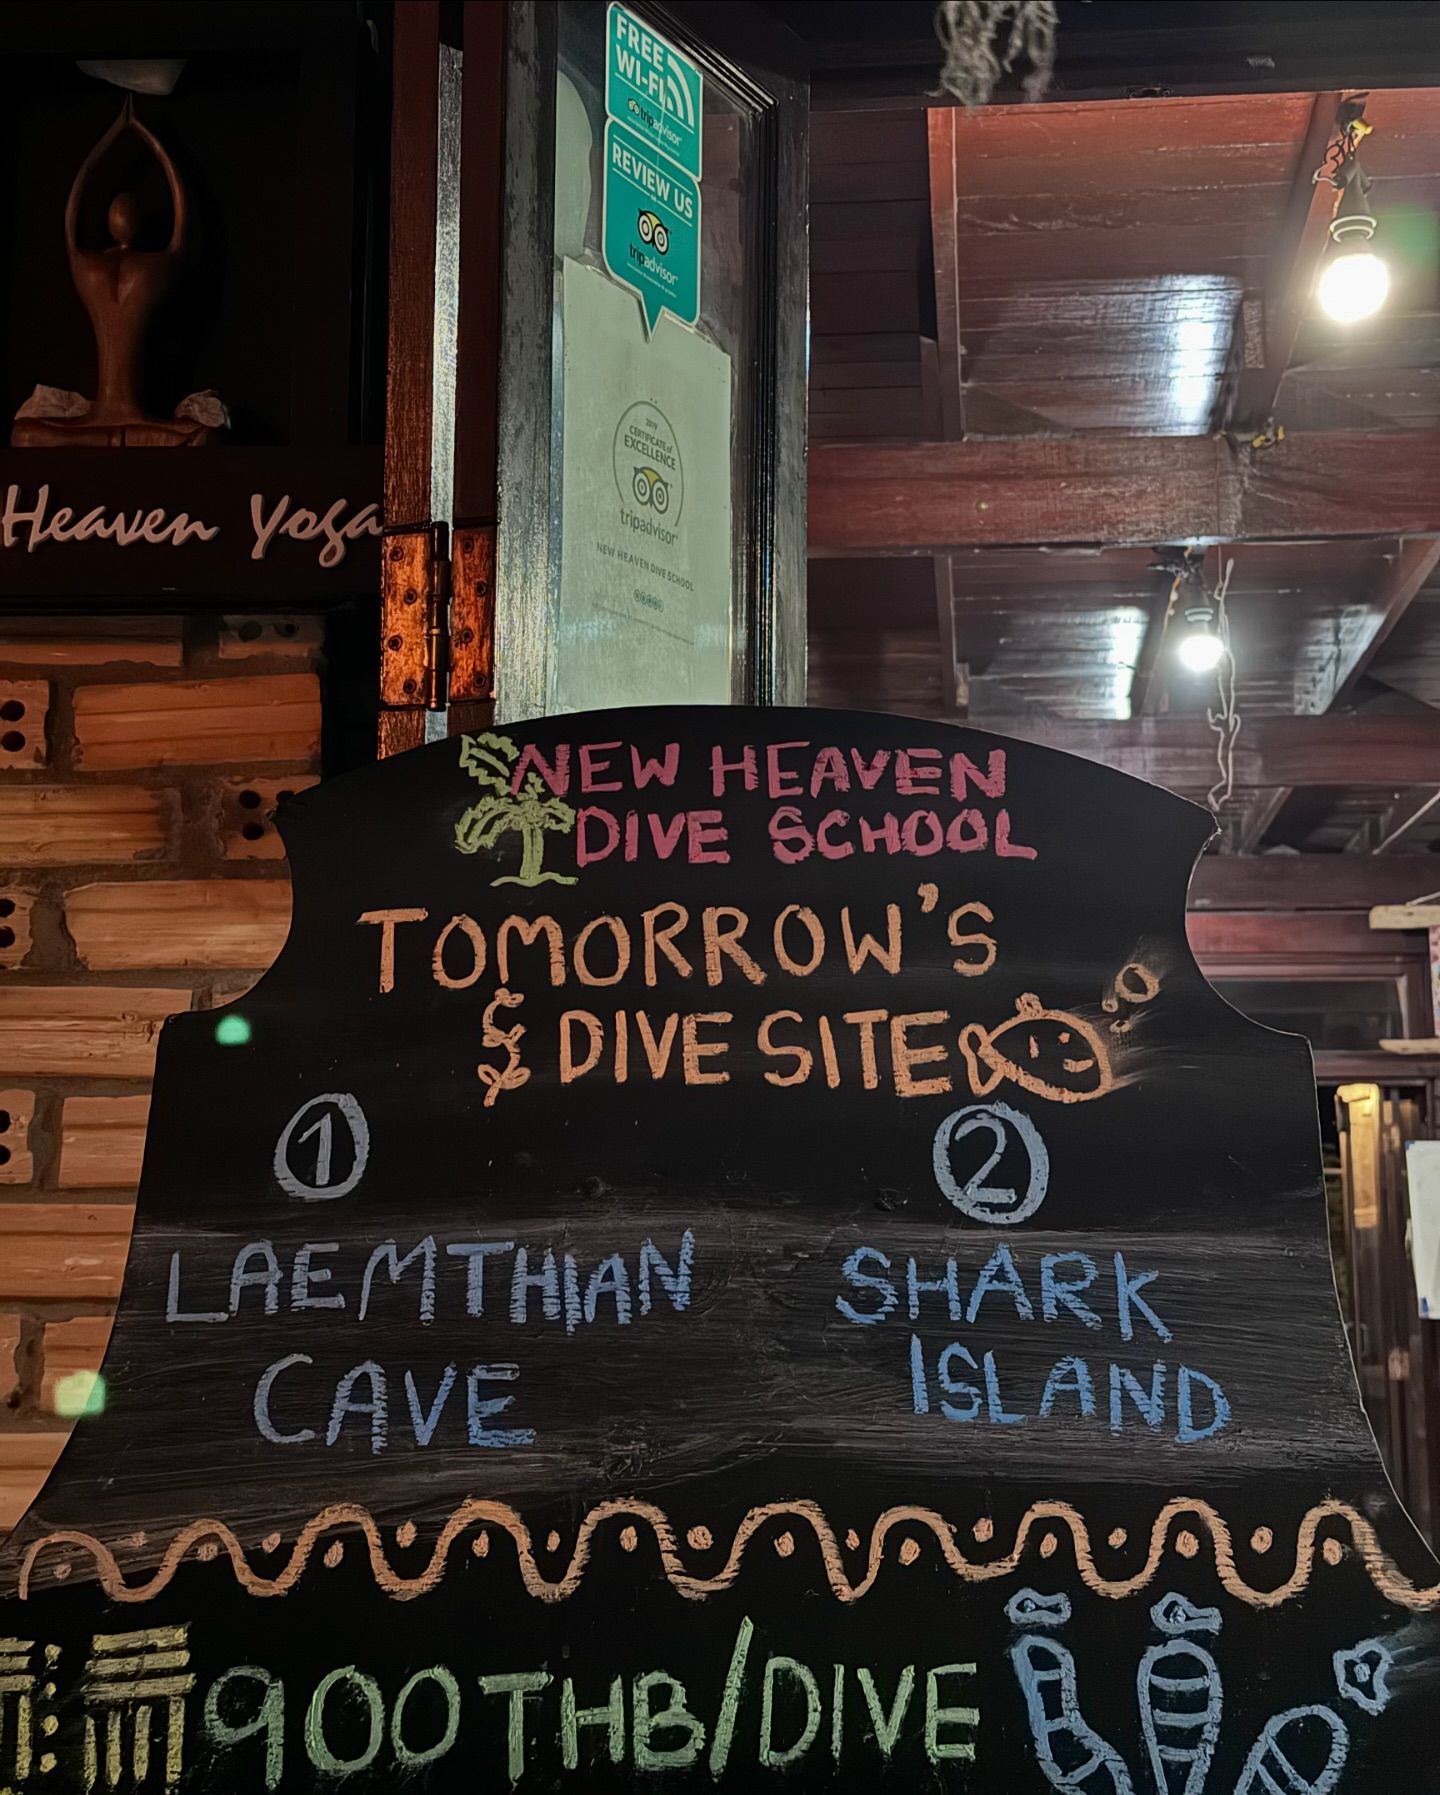 FREE
WI-FI
tripadvisor
REVIEW US
ON
tripadvisor
2019
CERTIFICATE of
EXCELLENCE
tripadvisor
NEW HEAVEN DIVE SCHOOL
Heaven Yoga
NEW HEAVEN
DIVE SCHOOL
TOMORROW'S
DIVE SITE
1
2
LAEMTHIAN
CAVE
SHARK
ISLAND
900THB/DIVE